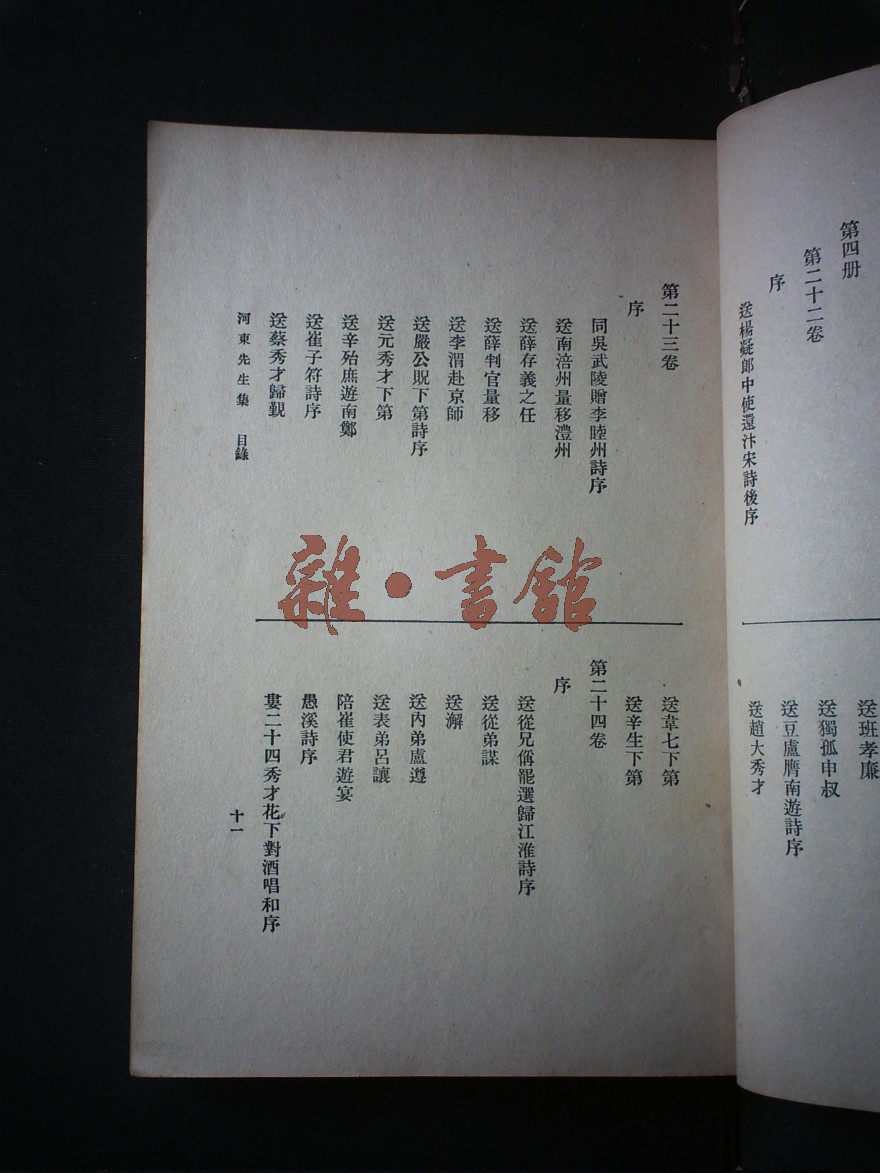 第四册
第二十二卷
序
送楊凝郎中使還汴宋詩後序
送班孝廉
送獨孤申叔
送豆盧膺南遊詩序
送趙大秀才
第二十三卷
序
同吳武陵贈李睦州詩序
送南涪州量移澧州
送薛存義之任
送薛判官量移
送李渭赴京師
送嚴公貺下第詩序
送元秀才下第
送辛殆庶遊南鄭
送崔子符詩序
送蔡秀才歸觐
河東先生集 目錄
送韋七下第
送辛生下第
第二十四卷
序
送從兄偁罷選歸江淮詩序
送從弟謀
送澥
送內弟盧遵
送表弟呂讓
陪崔使君遊宴
愚溪詩序
婁二十四秀才花下對酒唱和序
十一
雜·書館